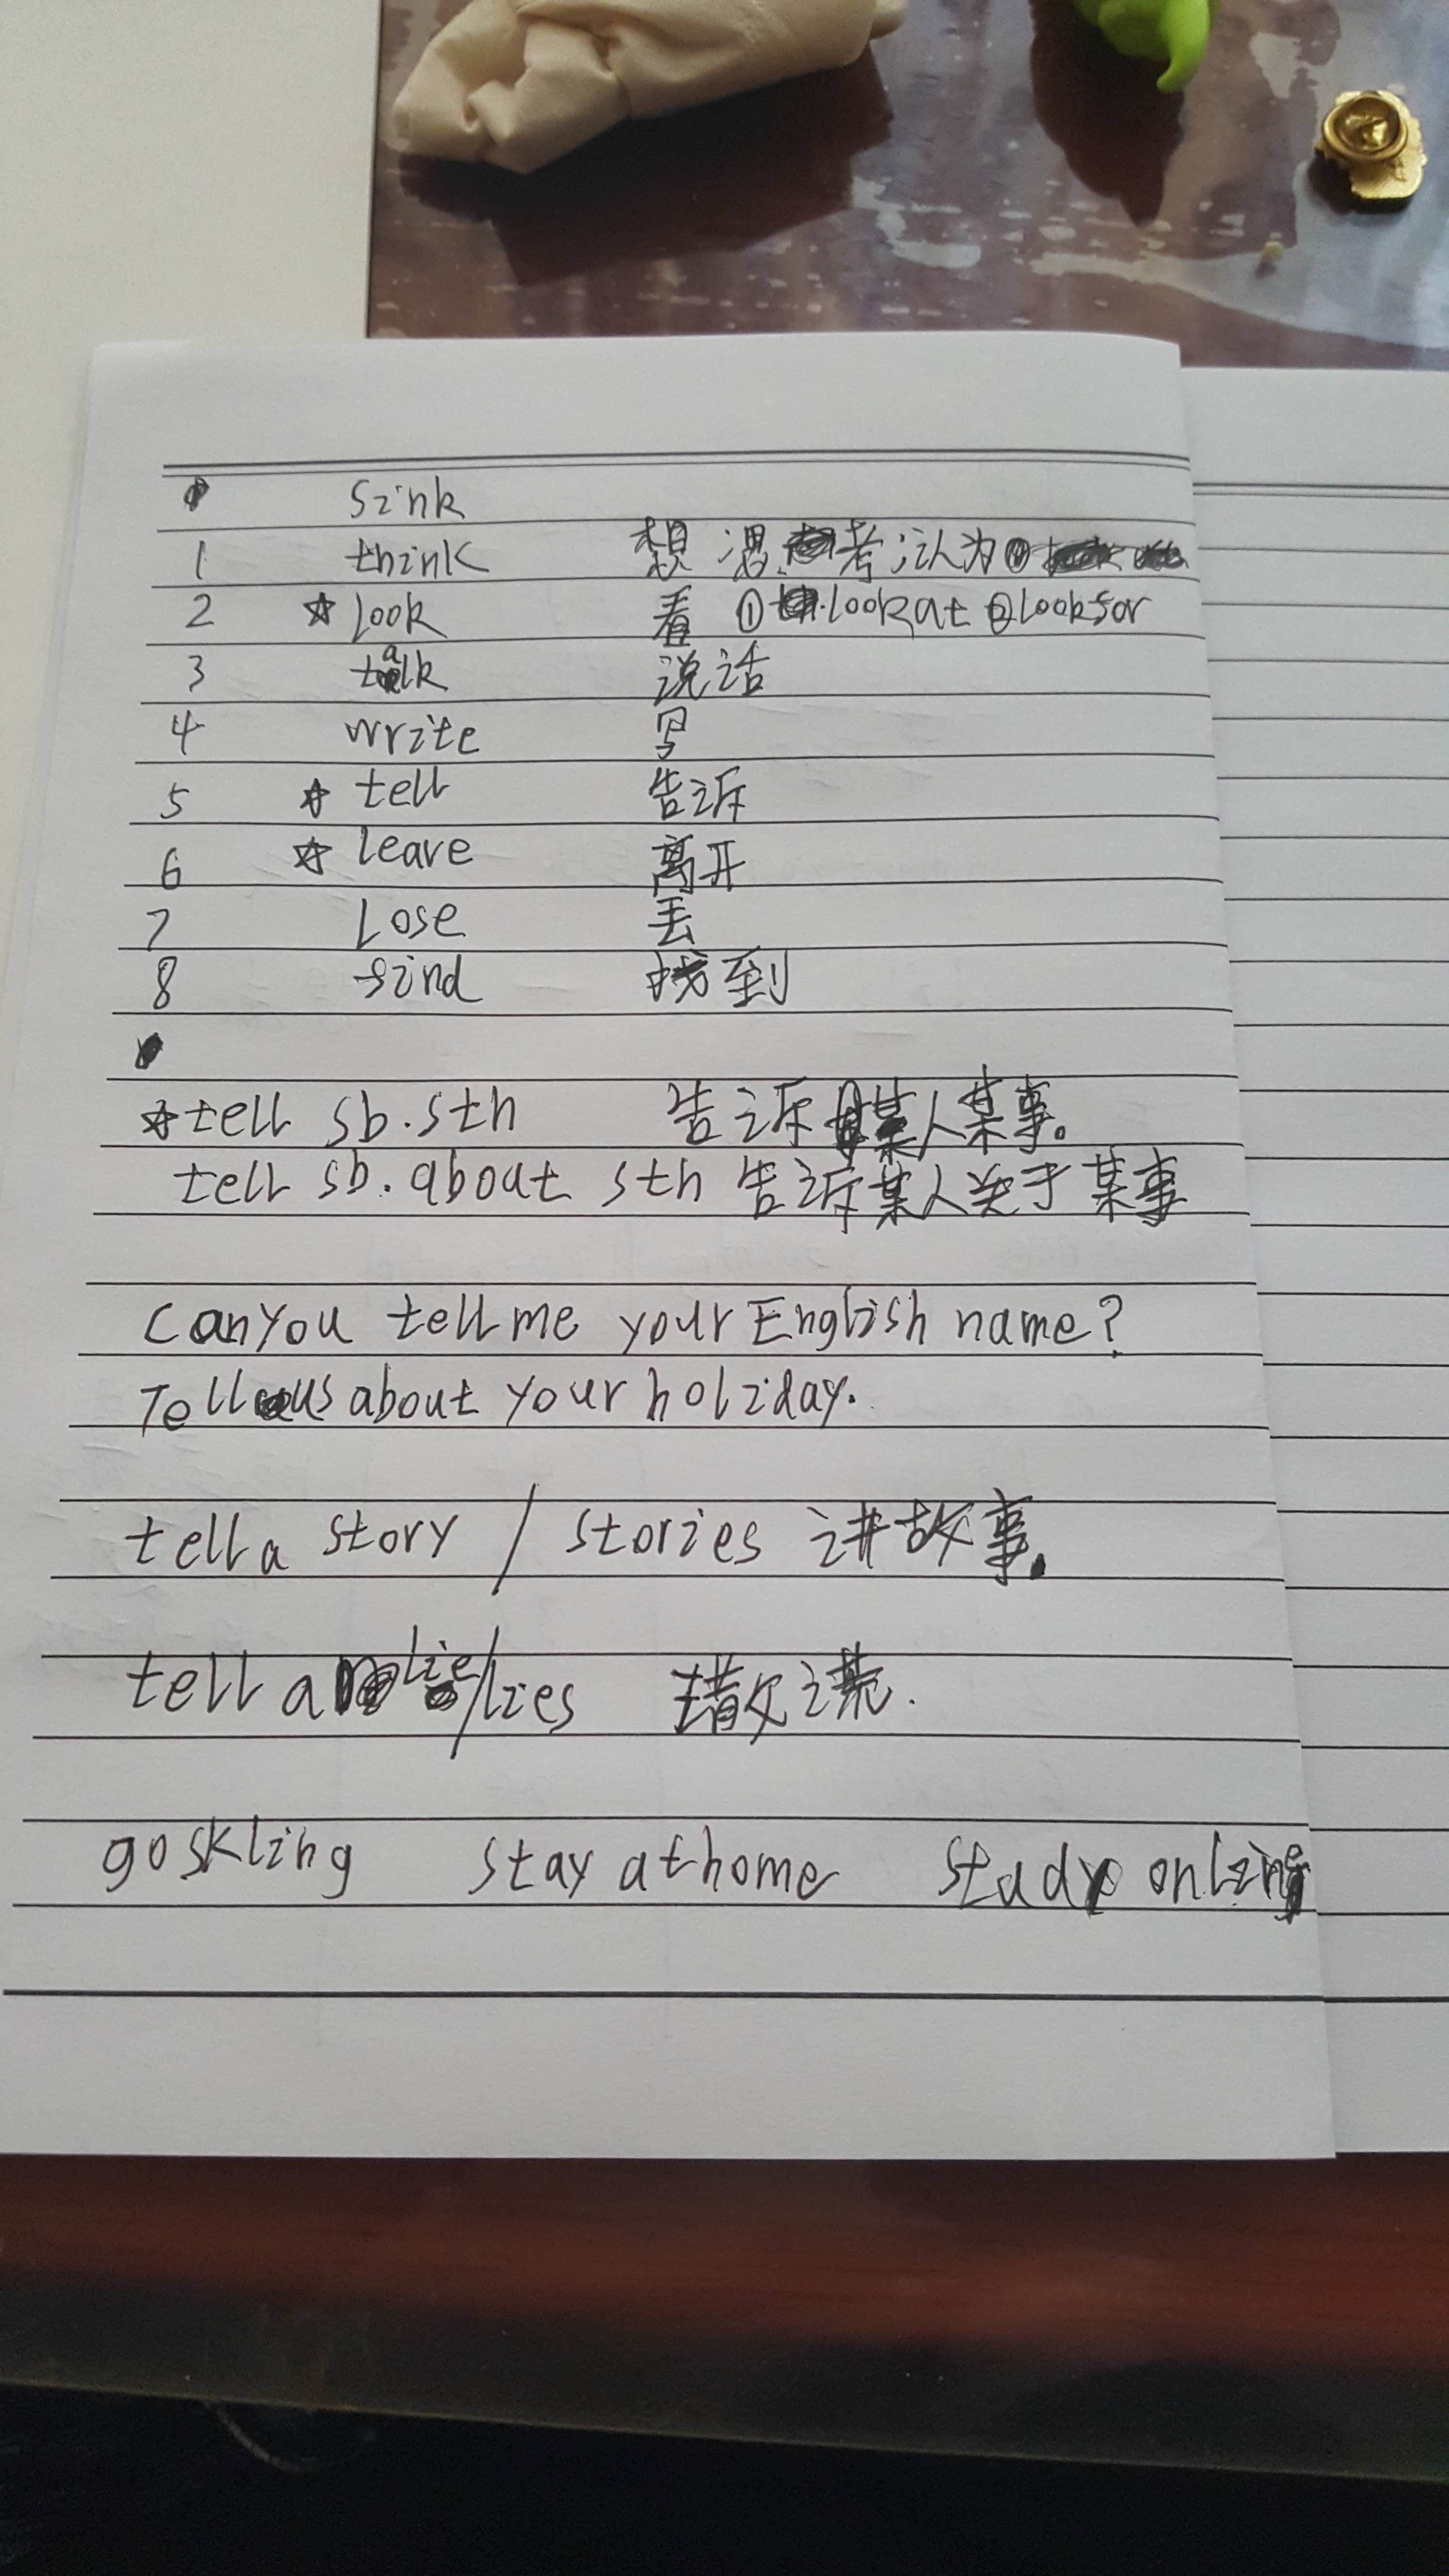 sink
1 think 想 考 认为
2 ☆ look 看 ① look at ② look for
3 talk 说话
4 write 写
5 ☆ tell 告诉
6 ☆ leave 离开
7 lose 丢
8 find 找到
☆ tell sb. sth 告诉某人某事。
tell sb. about sth 告诉某人关于某事
Can you tell me your English name?
Tell us about your holiday.
tell a story / stories 讲故事.
tell a lie/lies 谎.
go skling stay at home study online